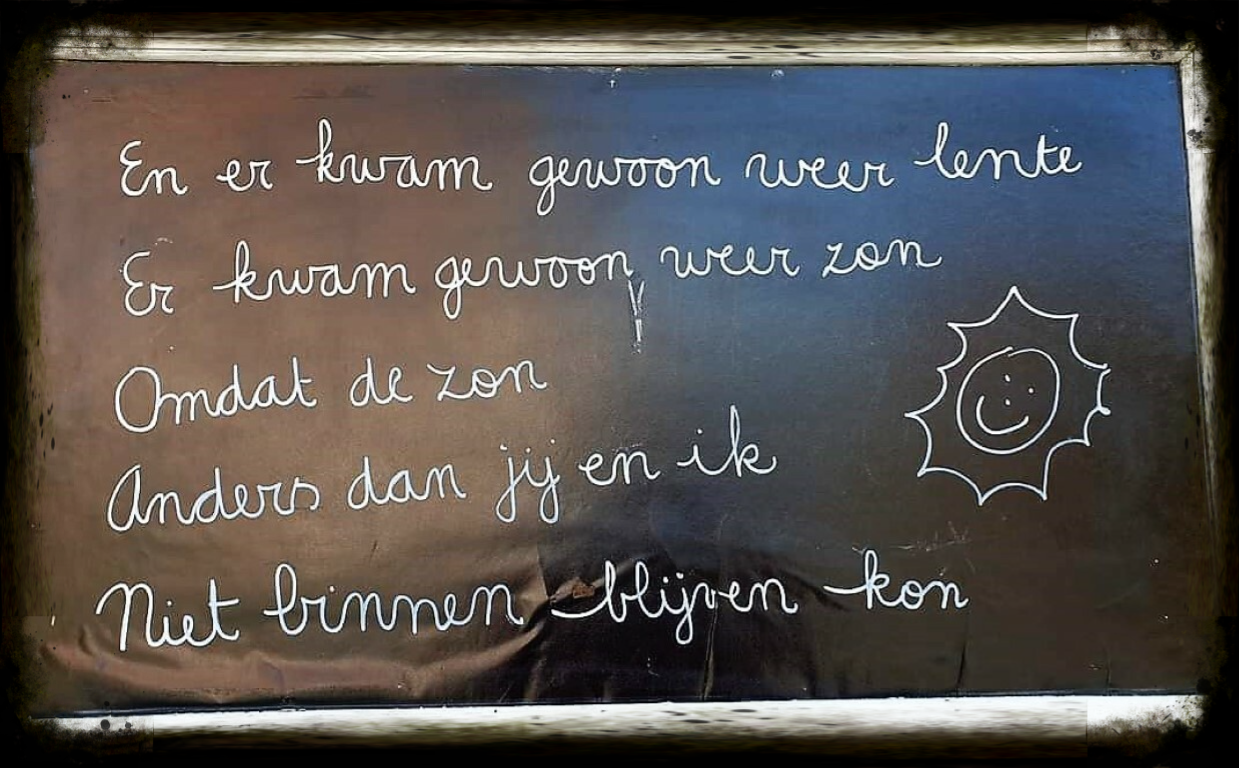 En er kwam gewoon weer lente
Er kwam gewoon weer zon
Omdat de zon
Anders dan jij en ik
Niet binnen blijven kon